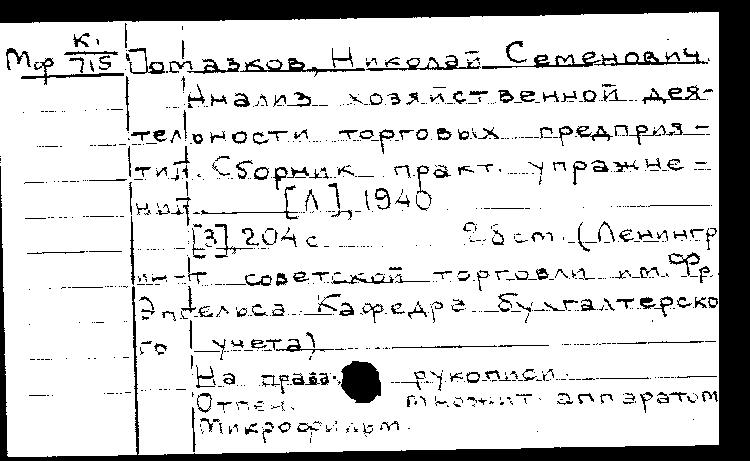 Мф К1/715 Помазков, Николай Семенович.
Анализ хозяйственной дея-
тельности торговых предприя-
тий. Сборник практ. упражне-
ний. [Л], 1940
[3], 204 с. 28 см. (Ленингр
ин-т советской торговли им. Фр.
Энгельса Кафедра бухгалтерско
го учета)
На правах рукописи.
Отпеч. множит. аппаратом
Микрофильм.